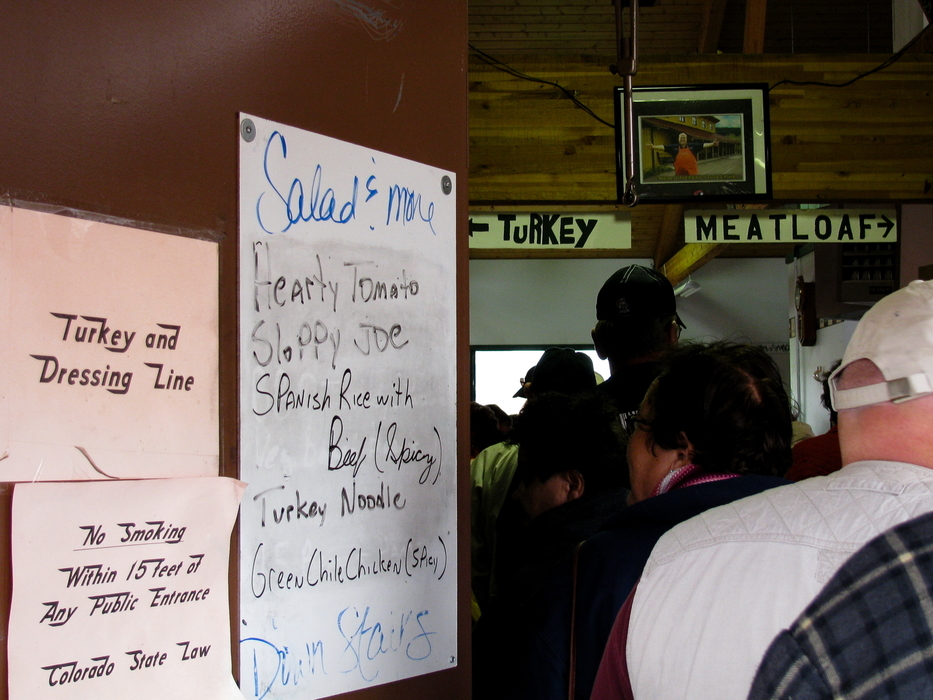 Turkey and
Dressing Line
No Smoking
Within 15 feet of
Any Public Entrance
Colorado State Law
Salad & more
Hearty Tomato
Sloppy Joe
SPANish Rice with
Beef (Spicy)
Turkey Noodle
Green Chile Chicken (Spicy)
Down Stairs
← TURKEY
MEATLOAF →